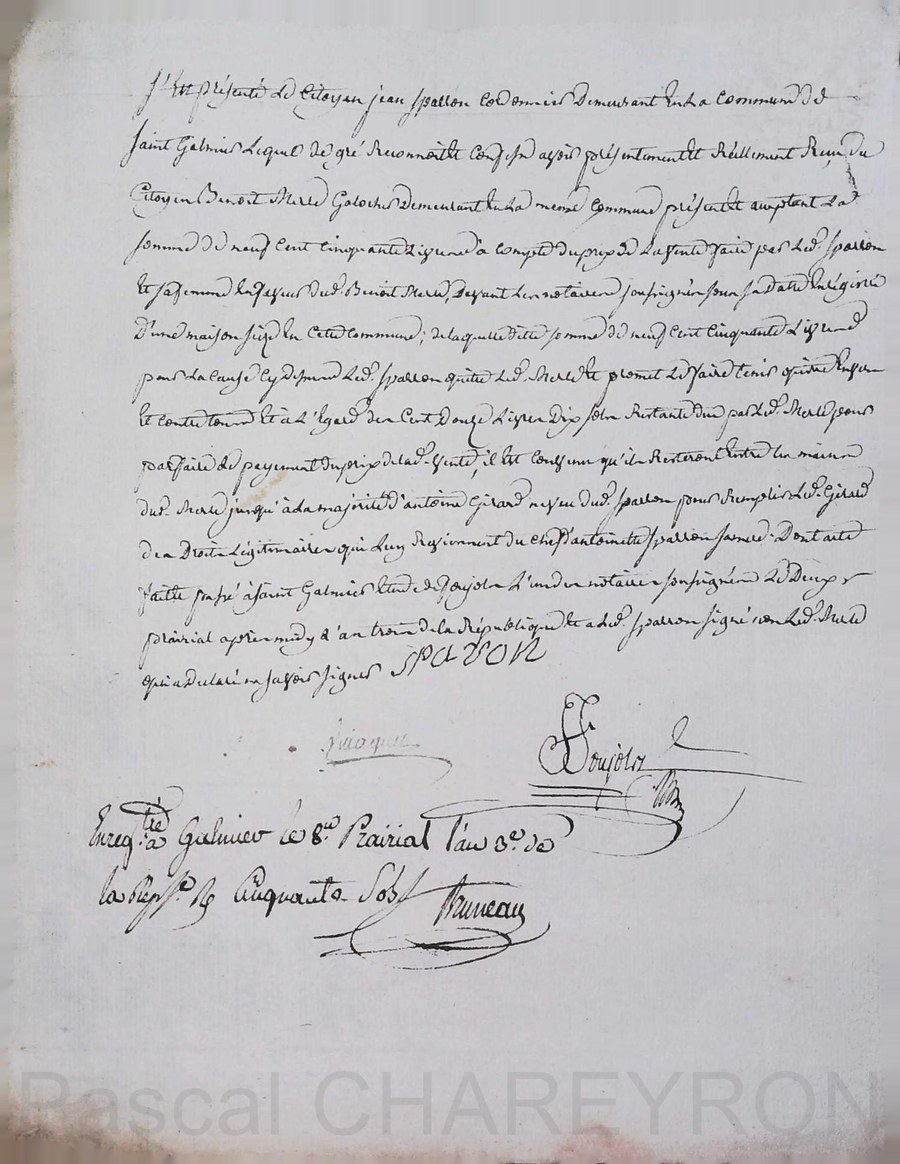 S'est présenté le Citoyen jean Sparron Cordonnier Demeurant en la Commune de
Saint Galmier Lequel de gré Reconnoit et Confesse avoir présentement et Réellement Reçu du
Citoyen Benoit Merle Galochier Demeurant en la même Commune présent et acceptant La
somme de neuf cent cinquante Livres à compte du prix de la vente faite par led. Sparron
et sa femme en faveur dud. Benoit Merle, Devant les notaires soussignés sous sa date Enrégistrée
D'une maison size en Cette Commune; de laquelle dite somme de neuf Cent Cinquante Livres
pour la Cause cy dessus Led. Sparron quitte Led. Merle et promet Le faire tenir quitte Envers
et contre tous et à L'égard des Cent Douze Livres Dix sols Restants dus par Led. Merle pour
parfaire Le payement du prix de lad. vente, il est Convenu qu'ils Resteront Entre les mains
dud. Merle jusqu'à la majorité d'antoine Girard neveu dud. Sparron pour Remplir Led. Girard
des Droits Légitimaires qui Luy Reviennent du chef d'antoinette Sparron sa mere. Dont acte
fait et passé à Saint Galmier Etude de Goujolz L'un des notaires soussignés Le Deux
prairial après midy L'an trois de la République et a Led. Sparron signé non Led. Merle
qui a declaré ne savoir signer SPARON
Goujolz
Enregtré à Galmier le 8.e Prairial l'an 3.e de
la Rep.e R Cinquante Sols Bruneau
Pascal CHAREYRON